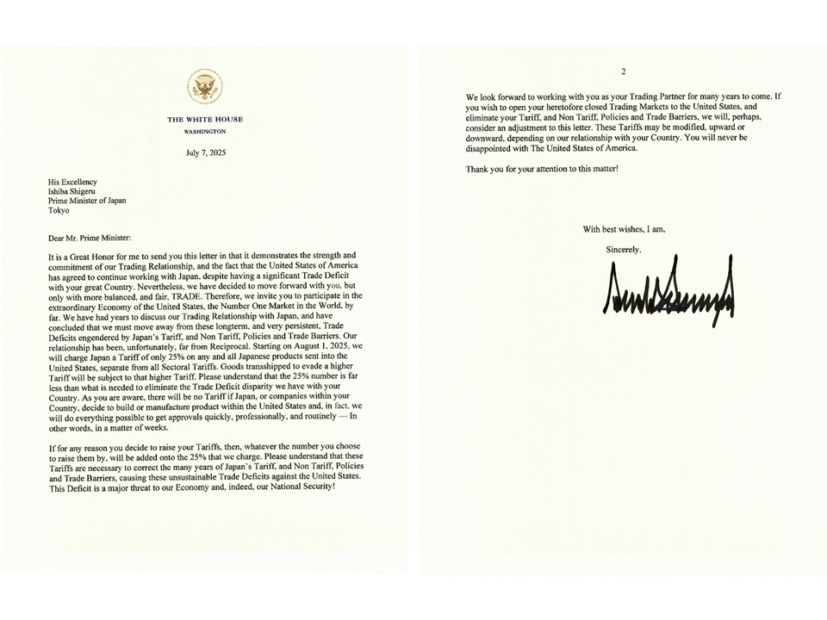 THE WHITE HOUSE
WASHINGTON
July 7, 2025
His Excellency
Ishiba Shigeru
Prime Minister of Japan
Tokyo
Dear Mr. Prime Minister:
It is a Great Honor for me to send you this letter in that it demonstrates the strength and
commitment of our Trading Relationship, and the fact that the United States of America
has agreed to continue working with Japan, despite having a significant Trade Deficit
with your great Country. Nevertheless, we have decided to move forward with you, but
only with more balanced, and fair, TRADE. Therefore, we invite you to participate in the
extraordinary Economy of the United States, the Number One Market in the World, by
far. We have had years to discuss our Trading Relationship with Japan, and have
concluded that we must move away from these longterm, and very persistent, Trade
Deficits engendered by Japan's Tariff, and Non Tariff, Policies and Trade Barriers. Our
relationship has been, unfortunately, far from Reciprocal. Starting on August 1, 2025, we
will charge Japan a Tariff of only 25% on any and all Japanese products sent into the
United States, separate from all Sectoral Tariffs. Goods transshipped to evade a higher
Tariff will be subject to that higher Tariff. Please understand that the 25% number is far
less than what is needed to eliminate the Trade Deficit disparity we have with your
Country. As you are aware, there will be no Tariff if Japan, or companies within your
Country, decide to build or manufacture product within the United States and, in fact, we
will do everything possible to get approvals quickly, professionally, and routinely — In
other words, in a matter of weeks.
If for any reason you decide to raise your Tariffs, then, whatever the number you choose
to raise them by, will be added onto the 25% that we charge. Please understand that these
Tariffs are necessary to correct the many years of Japan's Tariff, and Non Tariff, Policies
and Trade Barriers, causing these unsustainable Trade Deficits against the United States.
This Deficit is a major threat to our Economy and, indeed, our National Security!
2
We look forward to working with you as your Trading Partner for many years to come. If
you wish to open your heretofore closed Trading Markets to the United States, and
eliminate your Tariff, and Non Tariff, Policies and Trade Barriers, we will, perhaps,
consider an adjustment to this letter. These Tariffs may be modified, upward or
downward, depending on our relationship with your Country. You will never be
disappointed with The United States of America.
Thank you for your attention to this matter!
With best wishes, I am,
Sincerely,